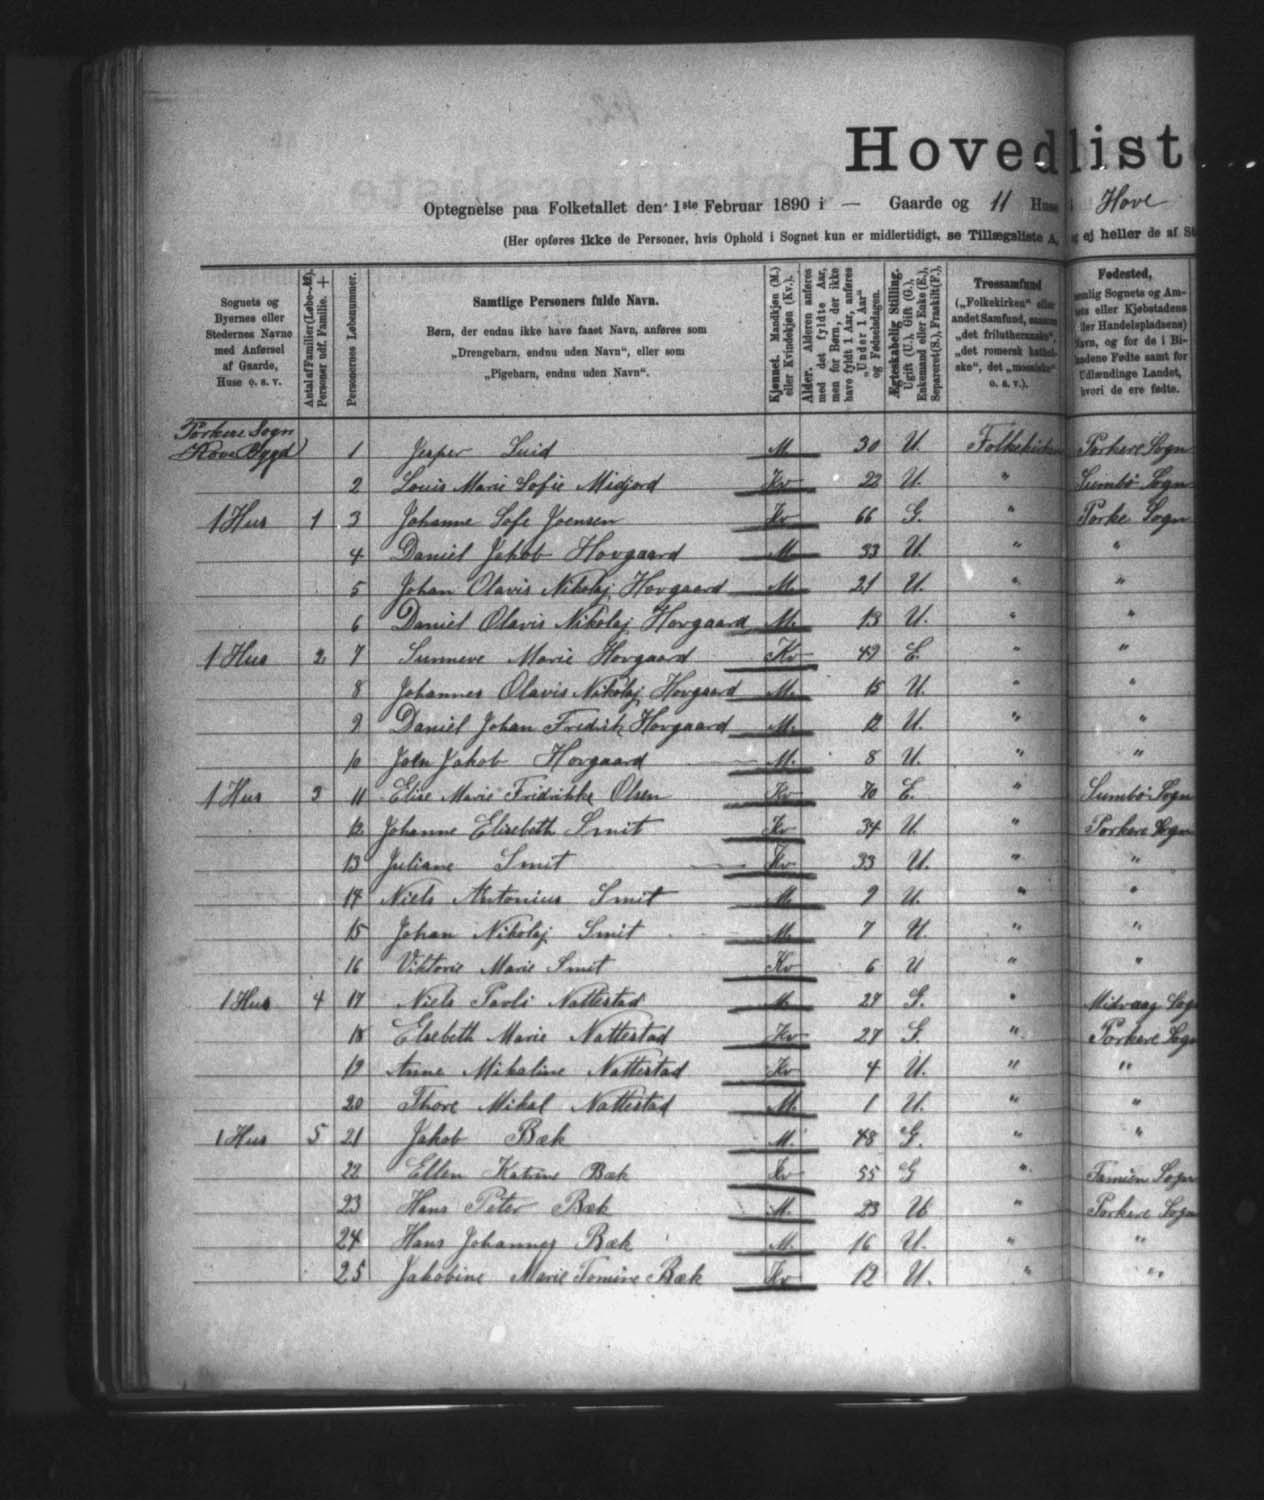 Hovedliste
Optegnelse paa Folketallet den 1ste Februar 1890 i — Gaarde og 11 Huse i Hove
(Her opføres ikke de Personer, hvis Ophold i Sognet kun er midlertidigt, se Tillægsliste A, og ej heller de af
Sognets og Byernes eller Stedernes Navne med Anførsel af Gaarde, Huse o. s. v.
Antal af Familier (Løbe-Nr.). Personer udf. Familie. +
Personernes Løbenummer.
Samtlige Personers fulde Navn.
Børn, der endnu ikke have faaet Navn, anføres som
„Drengebarn, endnu uden Navn“, eller som
„Pigebarn, endnu uden Navn“.
Kjønnet. Mandkjøn (M.) eller Kvindekjøn (Kv.).
Alder. Alderen anføres med det fyldte Aar, men for Børn, der ikke have fyldt 1 Aar, anføres „Under 1 Aar“ og Fødselsdagen.
Ægteskabelig Stilling. Ugift (U.), Gift (G.), Enkemand eller Enke (E.), Separeret (S.), Fraskilt (F.).
Trossamfund („Folkekirken“ eller andet Samfund, saasom „det frilutheranske“, „det romersk katholske“, det „mosaiske“ o. s. v.).
Fødested, nemlig Sognets og Amtets eller Kjøbstadens (eller Handelspladsens) Navn, og for de i Bilandene Fødte samt for Udlændinge Landet, hvori de ere fødte.
Porkere Sogn
Hove Bygd 1 Jesper Luid M. 30 U. Folkekirken Porkere Sogn
2 Louis Marie Sofie Midjord Kv 22 U. " Sumbø Sogn
1 Hus 1 3 Johanne Sofe Joensen Kv 66 G. " Porke Sogn
4 Daniel Jakob Hovgaard M 33 U. " "
5 Johan Olavis Nikolaj Hovgaard M. 21 U. " "
6 Daniel Olavis Nikolaj Hovgaard M. 13 U. " "
1 Hus 2 7 Sunneve Marie Hovgaard Kv 49 E. " "
8 Johannes Olavis Nikolaj Hovgaard M. 15 U. " "
9 Daniel Johan Fredrik Hovgaard M. 12 U. " "
10 Joen Jakob Hovgaard M. 8 U. " "
1 Hus 3 11 Elise Marie Fridrikke Olsen Kv 70 E. " Sumbø Sogn
12 Johanne Elisebeth Smit Kv 34 U. " Porkere Sogn
13 Juliane Smit Kv 33 U. " "
14 Niels Antonius Smit M. 9 U. " "
15 Johan Nikolaj Smit M. 7 U. " "
16 Viktorie Marie Smit Kv 6 U " "
1 Hus 4 17 Niels Pavli Nattestad M. 27 G. " Midvaag Sogn
18 Elsebeth Marie Nattestad Kv 27 G. " Porkere Sogn
19 Anne Mikaline Nattestad Kv 4 U. " "
20 Thore Mikal Nattestad M. 1 U. " "
1 Hus 5 21 Jakob Bæk M. 48 G. " "
22 Ellen Katrine Bæk Kv 55 G " Famien Sogn
23 Hans Peter Bæk M. 23 U " Porkere Sogn
24 Hans Johannes Bæk M. 16 U. " "
25 Jakobine Marie Tomine Bæk Kv 12 U. " "